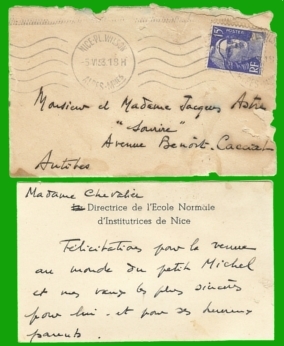 NICE-PL. WILSON
15F
POSTES
RF
Monsieur et Madame Jacques
"Sourire"
Avenue Benoît
Antibes
Madame Chevalier
Directrice de l'Ecole Normale
d'Institutrices de Nice
Félicitations pour la venue
au monde du petit Michel
et mes vœux les plus sincères
pour lui et pour ses heureux
parents.